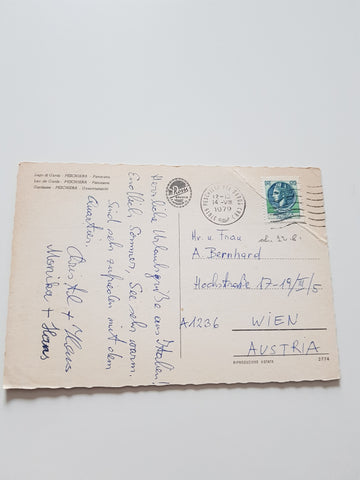 Lago di Garda - PESCHIERA - Panorama
Lac de Garda - PESCHIERA - Panorama
Gardasee - PESCHIERA - Gesamtansicht
Herzliche Urlaubsgrüße aus Italien!
Endlich Sommer, See sehr warm.
Sind sehr zufrieden mit dem
Quartier.
Christl + Klaus
Monika + Hans
14-VII
1979
Mr. u. Frau
A. Bernhard
Hochstraße 17-19/II/5
A1236 WIEN
AUSTRIA
RIPRODUZIONE VIETATA